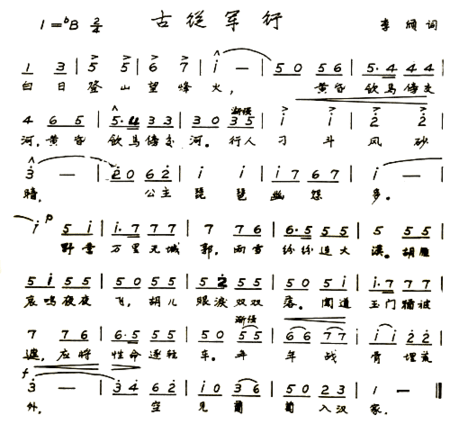 1=♭B 2/4 古從军行 李颀词
1 3 | 5 5 | 6 7 | i — | 5 0 5 6 | 5·4 4 4 |
白日登山望烽火， 黄昏饮马傍交
渐强
4 6 5 | 5·4 3 3 | 3 0 3 5 | i i | 2 2 |
河，黄昏 饮马傍交 河。行人 刁 斗 风 砂
3 — | 2 0 6 2 | i i | i 7 6 7 | i — |
暗。 公主 琵 琶 幽 怨 多。
p
i 5 i | i·7 7 7 | 7 7 6 | 6·5 5 5 | 5 5 5 |
野营 万里无城 郭，雨雪 纷纷连大 漠。胡雁
5 i 5 5 | 5 0 5 5 | 5 2 5 5 | 5 0 5 i | i·7 7 7 |
哀鸣夜夜 飞，胡儿 眼泪双双 落。闻道 玉门犹被
渐强
7 7 6 | 6·5 5 5 | 5 0 5 5 | 6 6 7 7 | i i 2 2 |
遮，应将 性命逐轻 车。年 年 战 骨 埋荒
f
3 — | 3 4 6 2 | i 0 3 6 | 5 0 2 3 | 1 — ‖
外， 空 见 葡 萄 入汉 家。